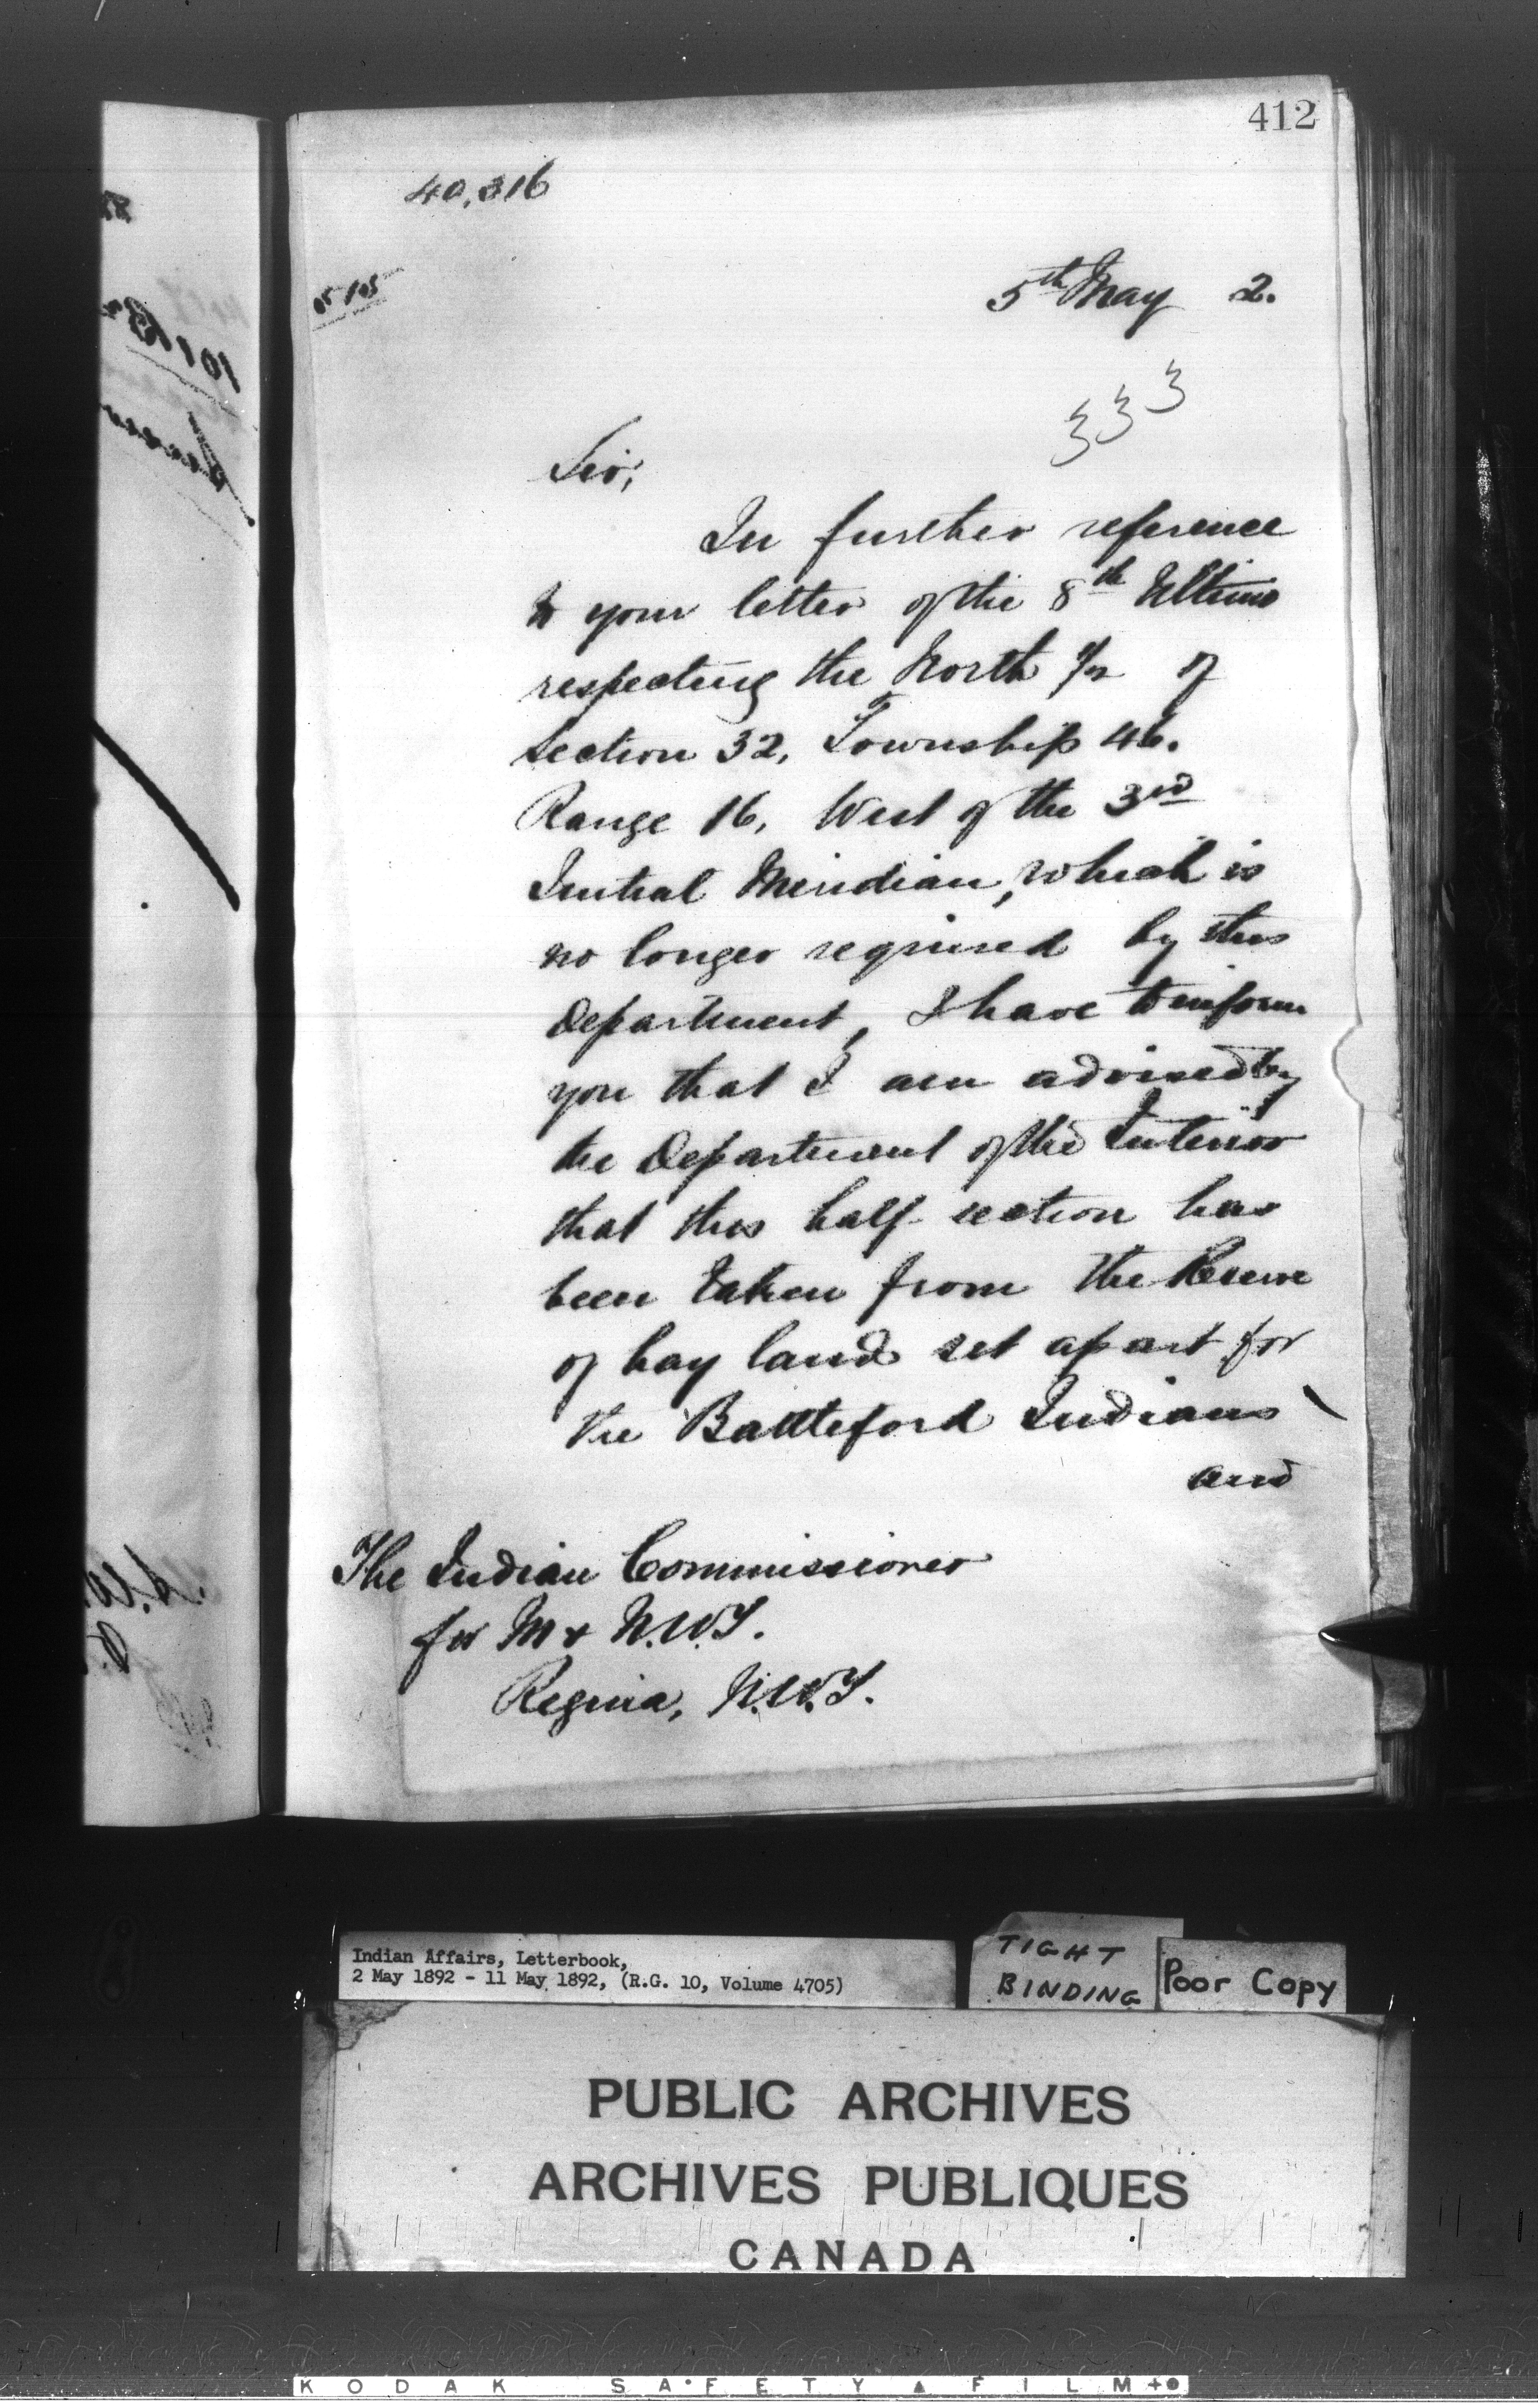 412
40,316
5th May 2.
333
Sir,
In further reference
to your letter of the 8th Ultimo
respecting the North 1/2 of
section 32, Township 46.
Range 16, West of the 3rd
Initial Meridian, which is
no longer required by this
Department, I have to inform
you that I am advised by
the Department of the Interior
that this half section has
been taken from the Reserve
of hay land set apart for
the Battleford Indians
and
The Indian Commissioner
for M & N.W.T.
Regina, N.W.T.
Indian Affairs, Letterbook,
2 May 1892 - 11 May 1892, (R.G. 10, Volume 4705)
TIGHT
BINDING
Poor Copy
PUBLIC ARCHIVES
ARCHIVES PUBLIQUES
CANADA
KODAK SAFETY FILM